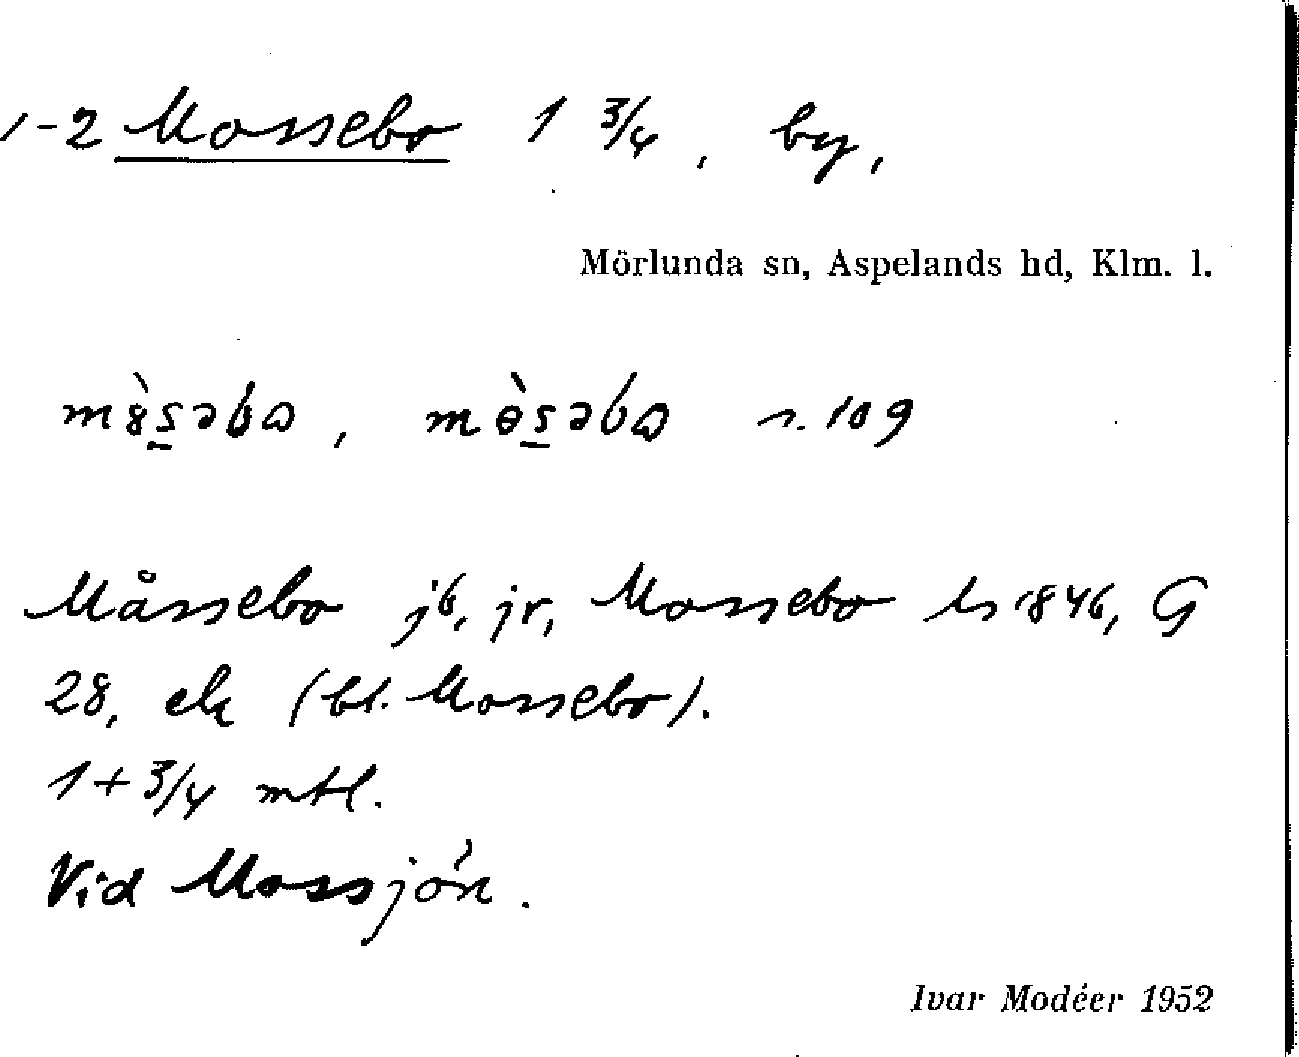 1-2 Mossebo 1 3/4, by,
Mörlunda sn, Aspelands hd, Klm. l.
mȣ̀s̠əbɷ, mɵ̀s̠əbɷ s. 109
Måssebo jb, jr, Mossebo ls 1846, G
28, ek (bl. Mossebo).
1 + 3/4 mtl.
Vid Mossjön.
Ivar Modéer 1952